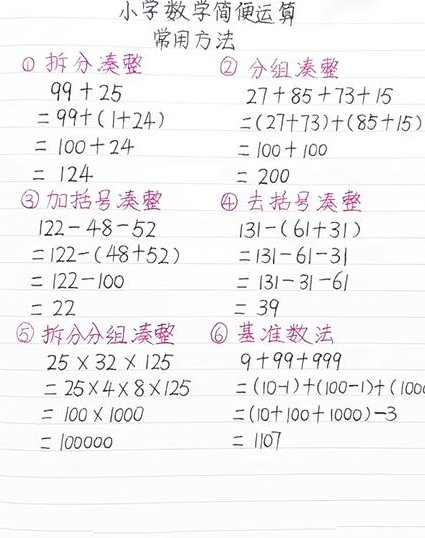 小学数学简便运算
常用方法
① 拆分凑整
99+25
=99+(1+24)
=100+24
=124
② 分组凑整
27+85+73+15
=(27+73)+(85+15)
=100+100
=200
③ 加括号凑整
122-48-52
=122-(48+52)
=122-100
=22
④ 去括号凑整
131-(61+31)
=131-61-31
=131-31-61
=39
⑤ 拆分分组凑整
25×32×125
=25×4×8×125
=100×1000
=100000
⑥ 基准数法
9+99+999
=(10-1)+(100-1)+(1000
=(10+100+1000)-3
=1107